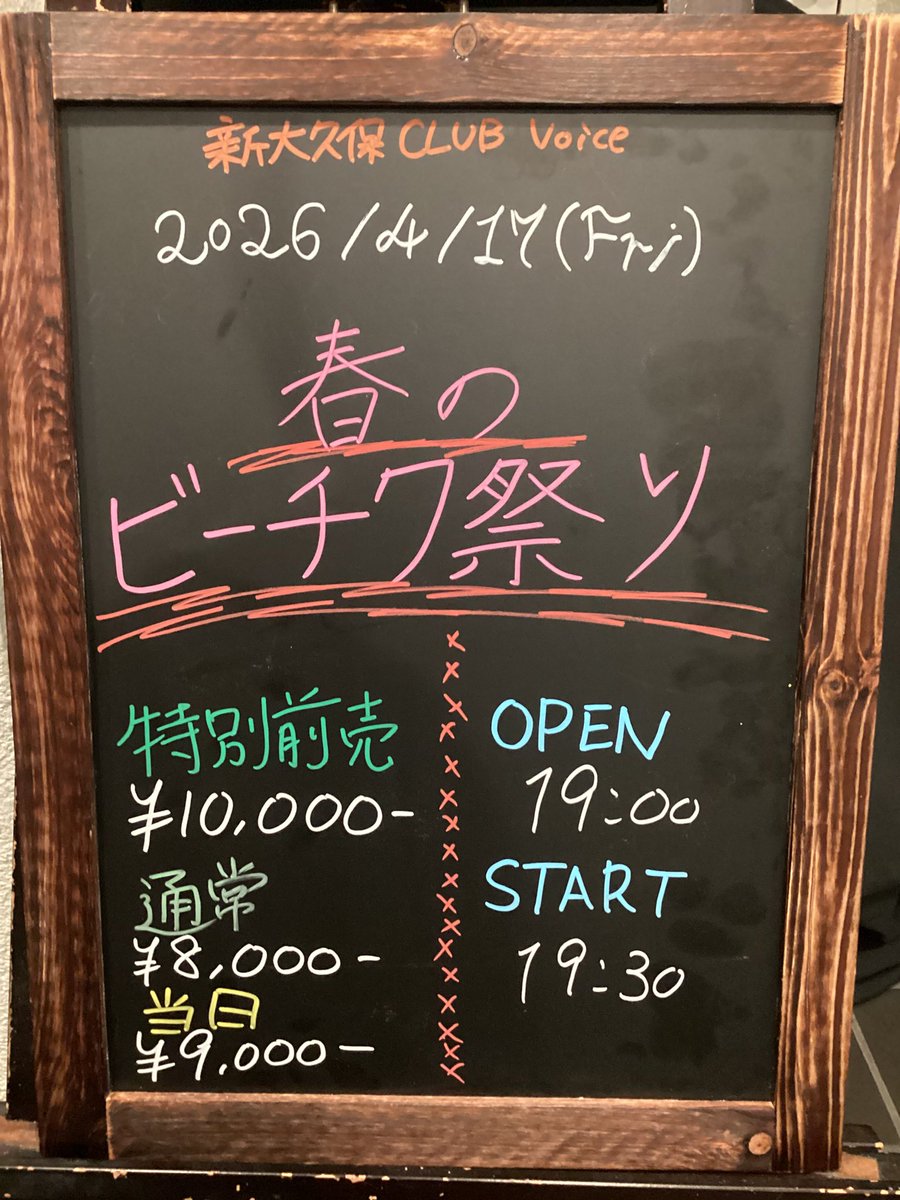 新大久保 CLUB Voice
2026/4/17(Fri)
春の
ビーチク祭り
特別前売
¥10,000-
通常
¥8,000-
当日
¥9,000-
OPEN
19:00
START
19:30